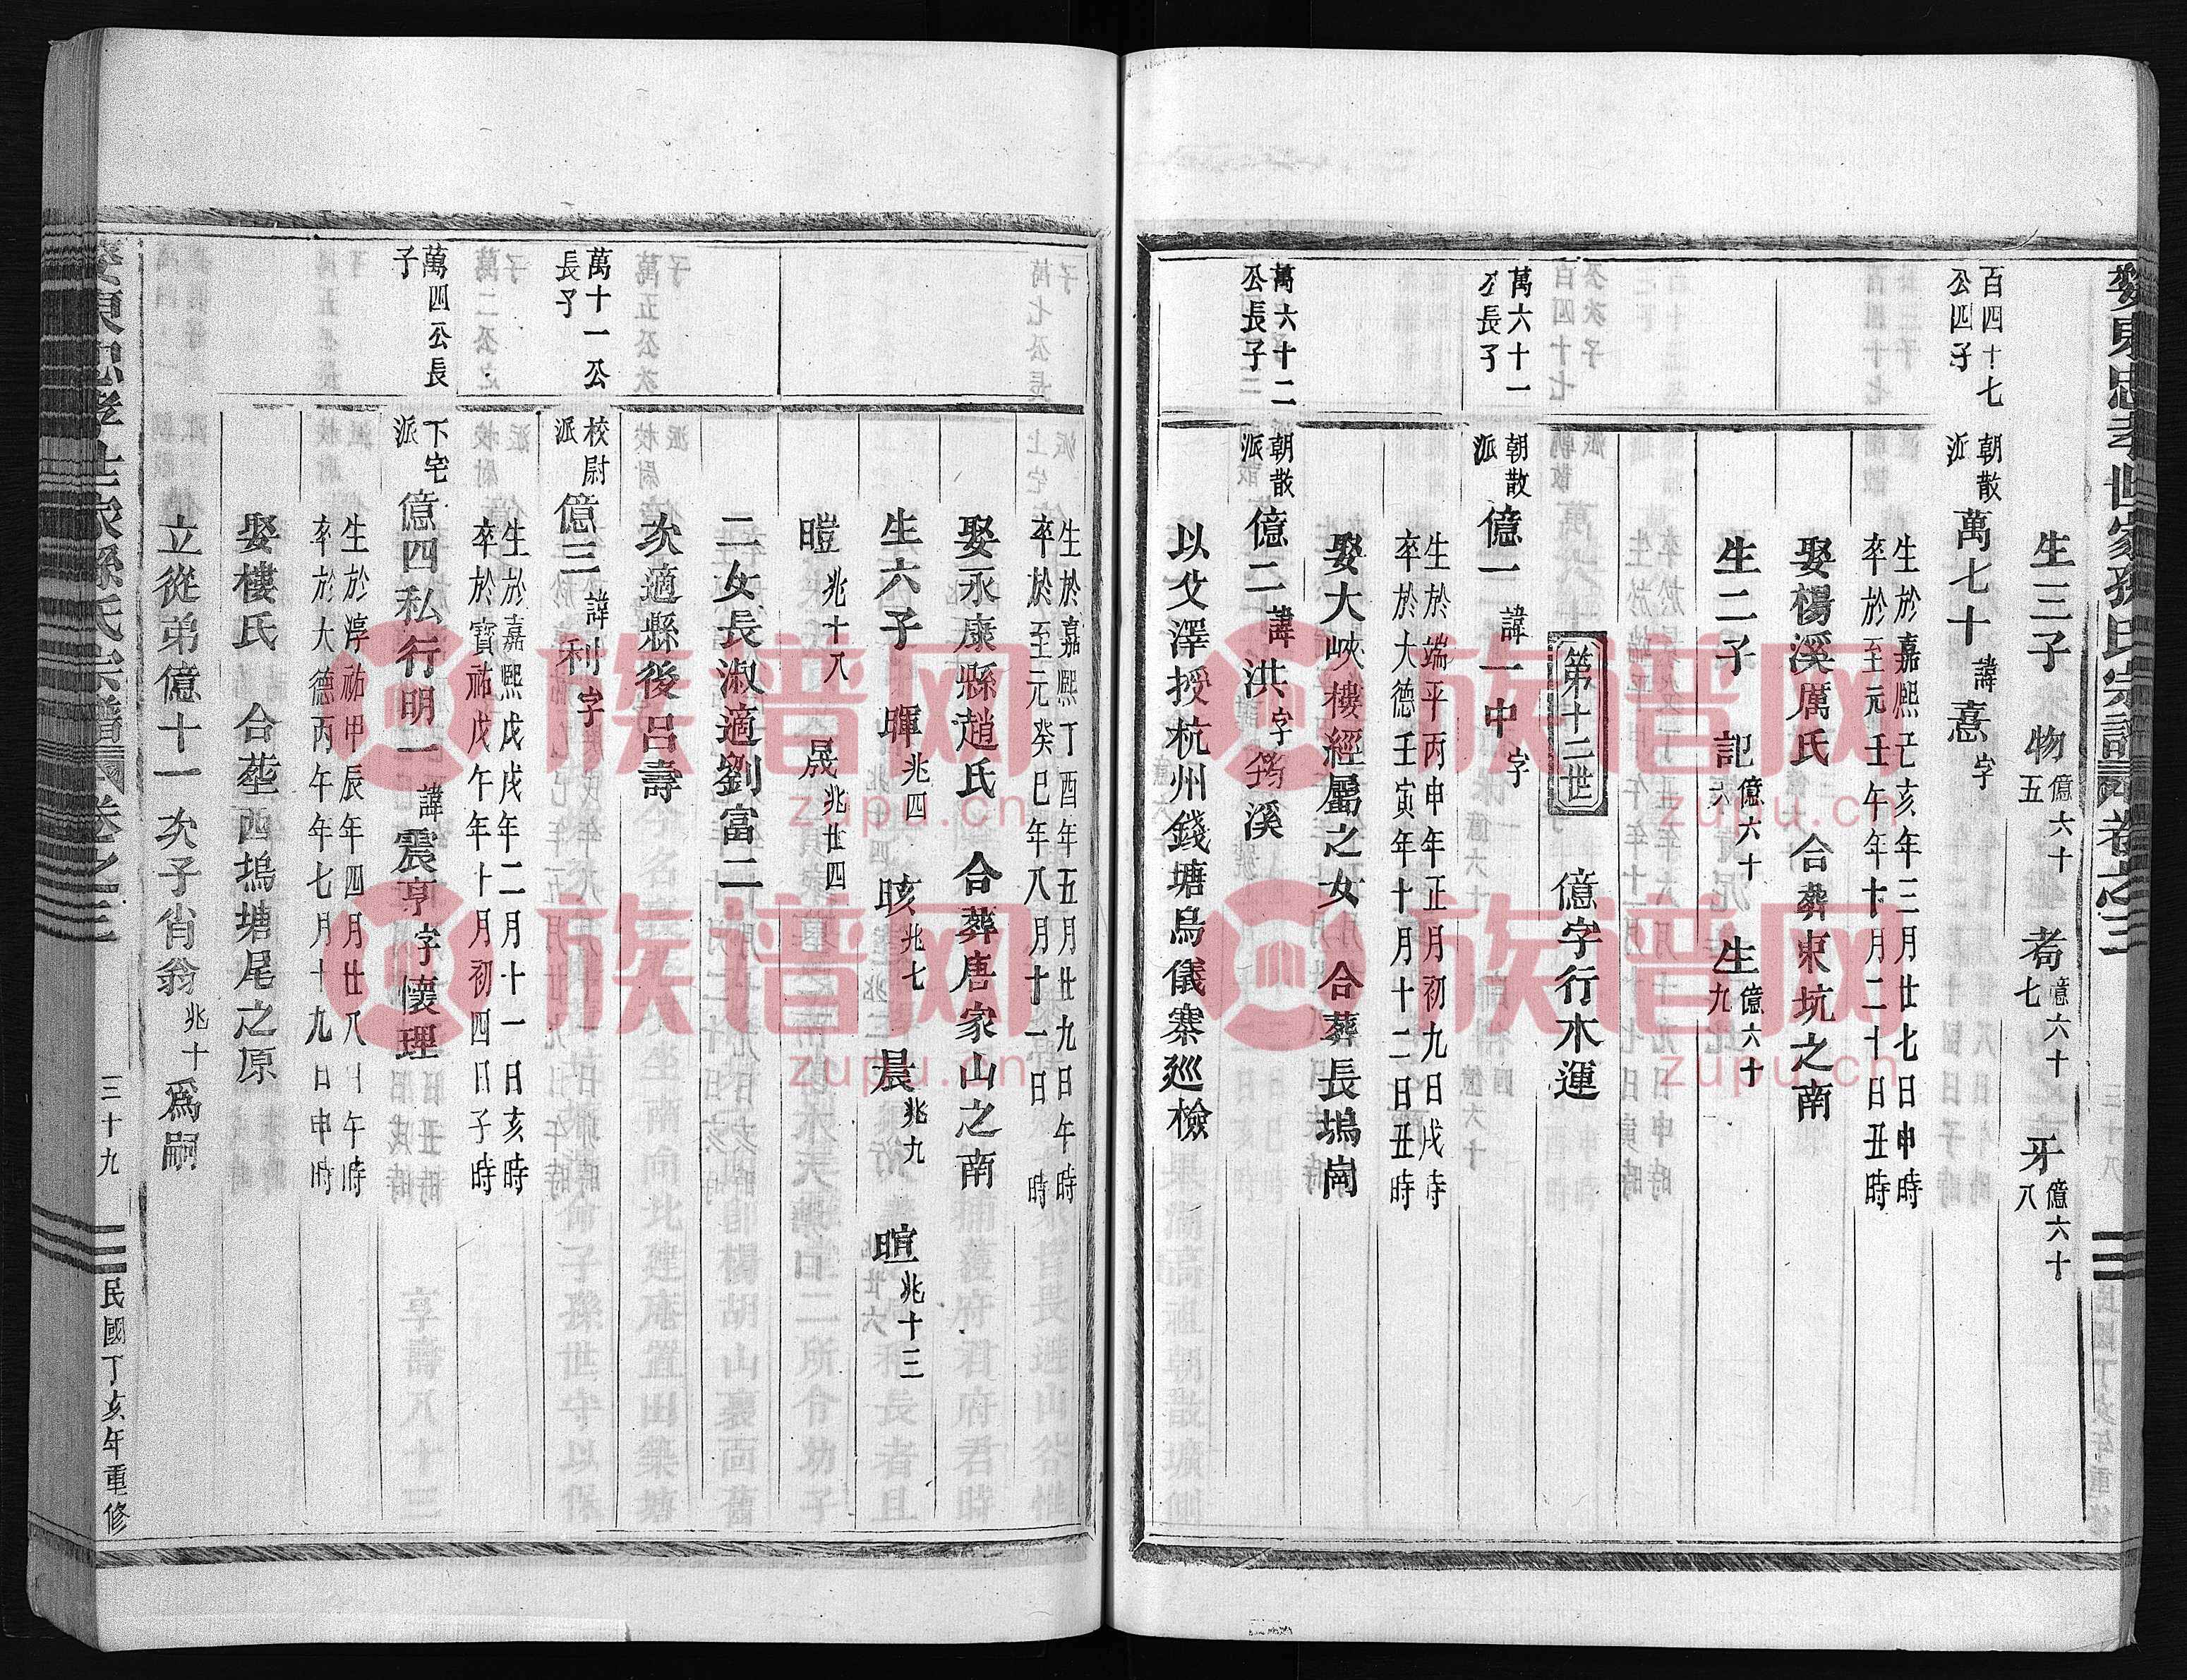 婺東忠孝世家孫氏宗譜 卷之三
生三子 物億六十五 耇億六十七 牙億六十八
百四十七公四子 朝散派 萬七十諱憙字
生於嘉熙己亥年三月廿七日申時
卒於至元壬午年十月二十日丑時
娶楊溪厲氏 合葬東坑之南
生二子 記億六十六 生億六十九
第十二世 億字行木運
萬六十一公長子 朝散派 億一諱一中字
生於端平丙申年正月初九日戌時
卒於大德壬寅年十月十二日丑時
娶大峽樓經屬之女 合葬長塢崗
萬六十二公長子 朝散派 億二諱洪字筠溪
以父澤授杭州錢塘烏儀寨巡檢
生於嘉熙丁酉年五月廿九日午時
卒於至元癸巳年八月十一日 時
娶永康縣趙氏 合葬唐家山之南
生六子 暉兆四 晐兆七 晨兆九 暄兆十三
暟兆十八 晟兆廿四
二女長淑適劉富二
次適縣後呂壽
萬十一公長子 校尉派 億三諱利字
生於嘉熙戊戌年二月十一日亥時
卒於寶祐戊午年十月初四日子時
萬四公長子 下宅派 億四私行明一諱震亨字懷理
生於淳祐甲辰年四月廿八日午時
卒於大德丙午年七月十九日申時
娶樓氏 合塟西塢塘尾之原
立從弟億十一次子肖翁兆十爲嗣
婺東忠孝世家孫氏宗譜 卷之三 三十九 民國丁亥年重修
族谱网
zupu.cn
族谱网
zupu.cn
族谱网
zupu.cn
族谱网
zupu.cn